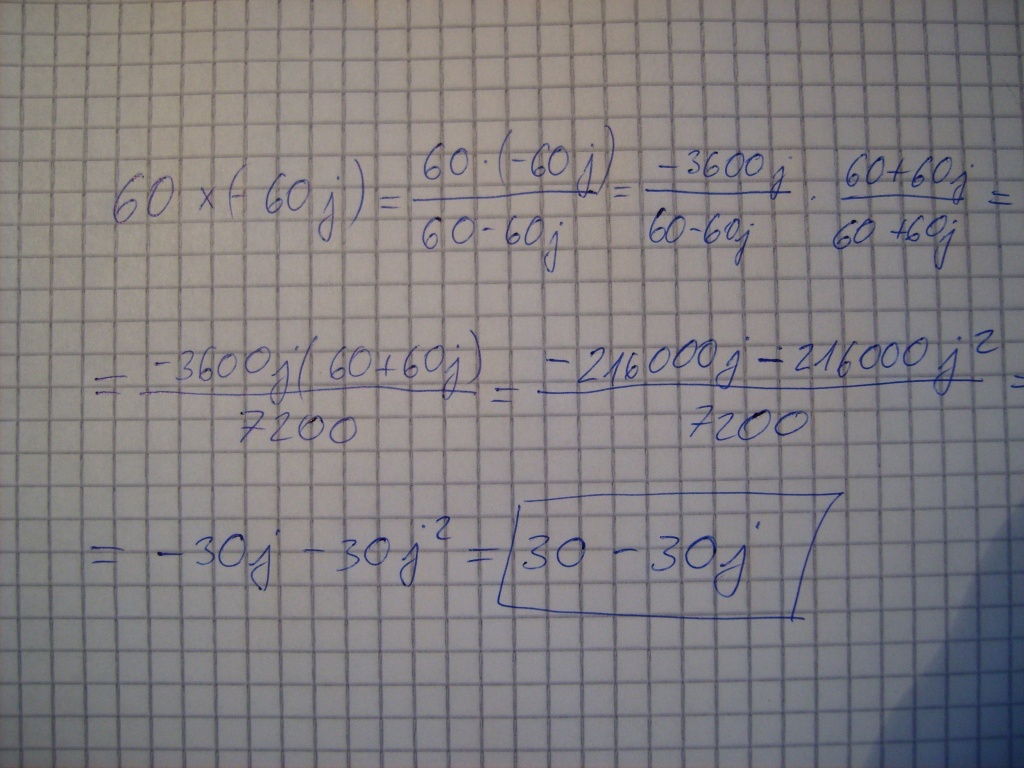 60 × (-60j) = 60·(-60j) / 60-60j = -3600j / 60-60j · 60+60j / 60+60j =
= -3600j(60+60j) / 7200 = -216000j - 216000j² / 7200 =
= -30j - 30j² = 30 - 30j